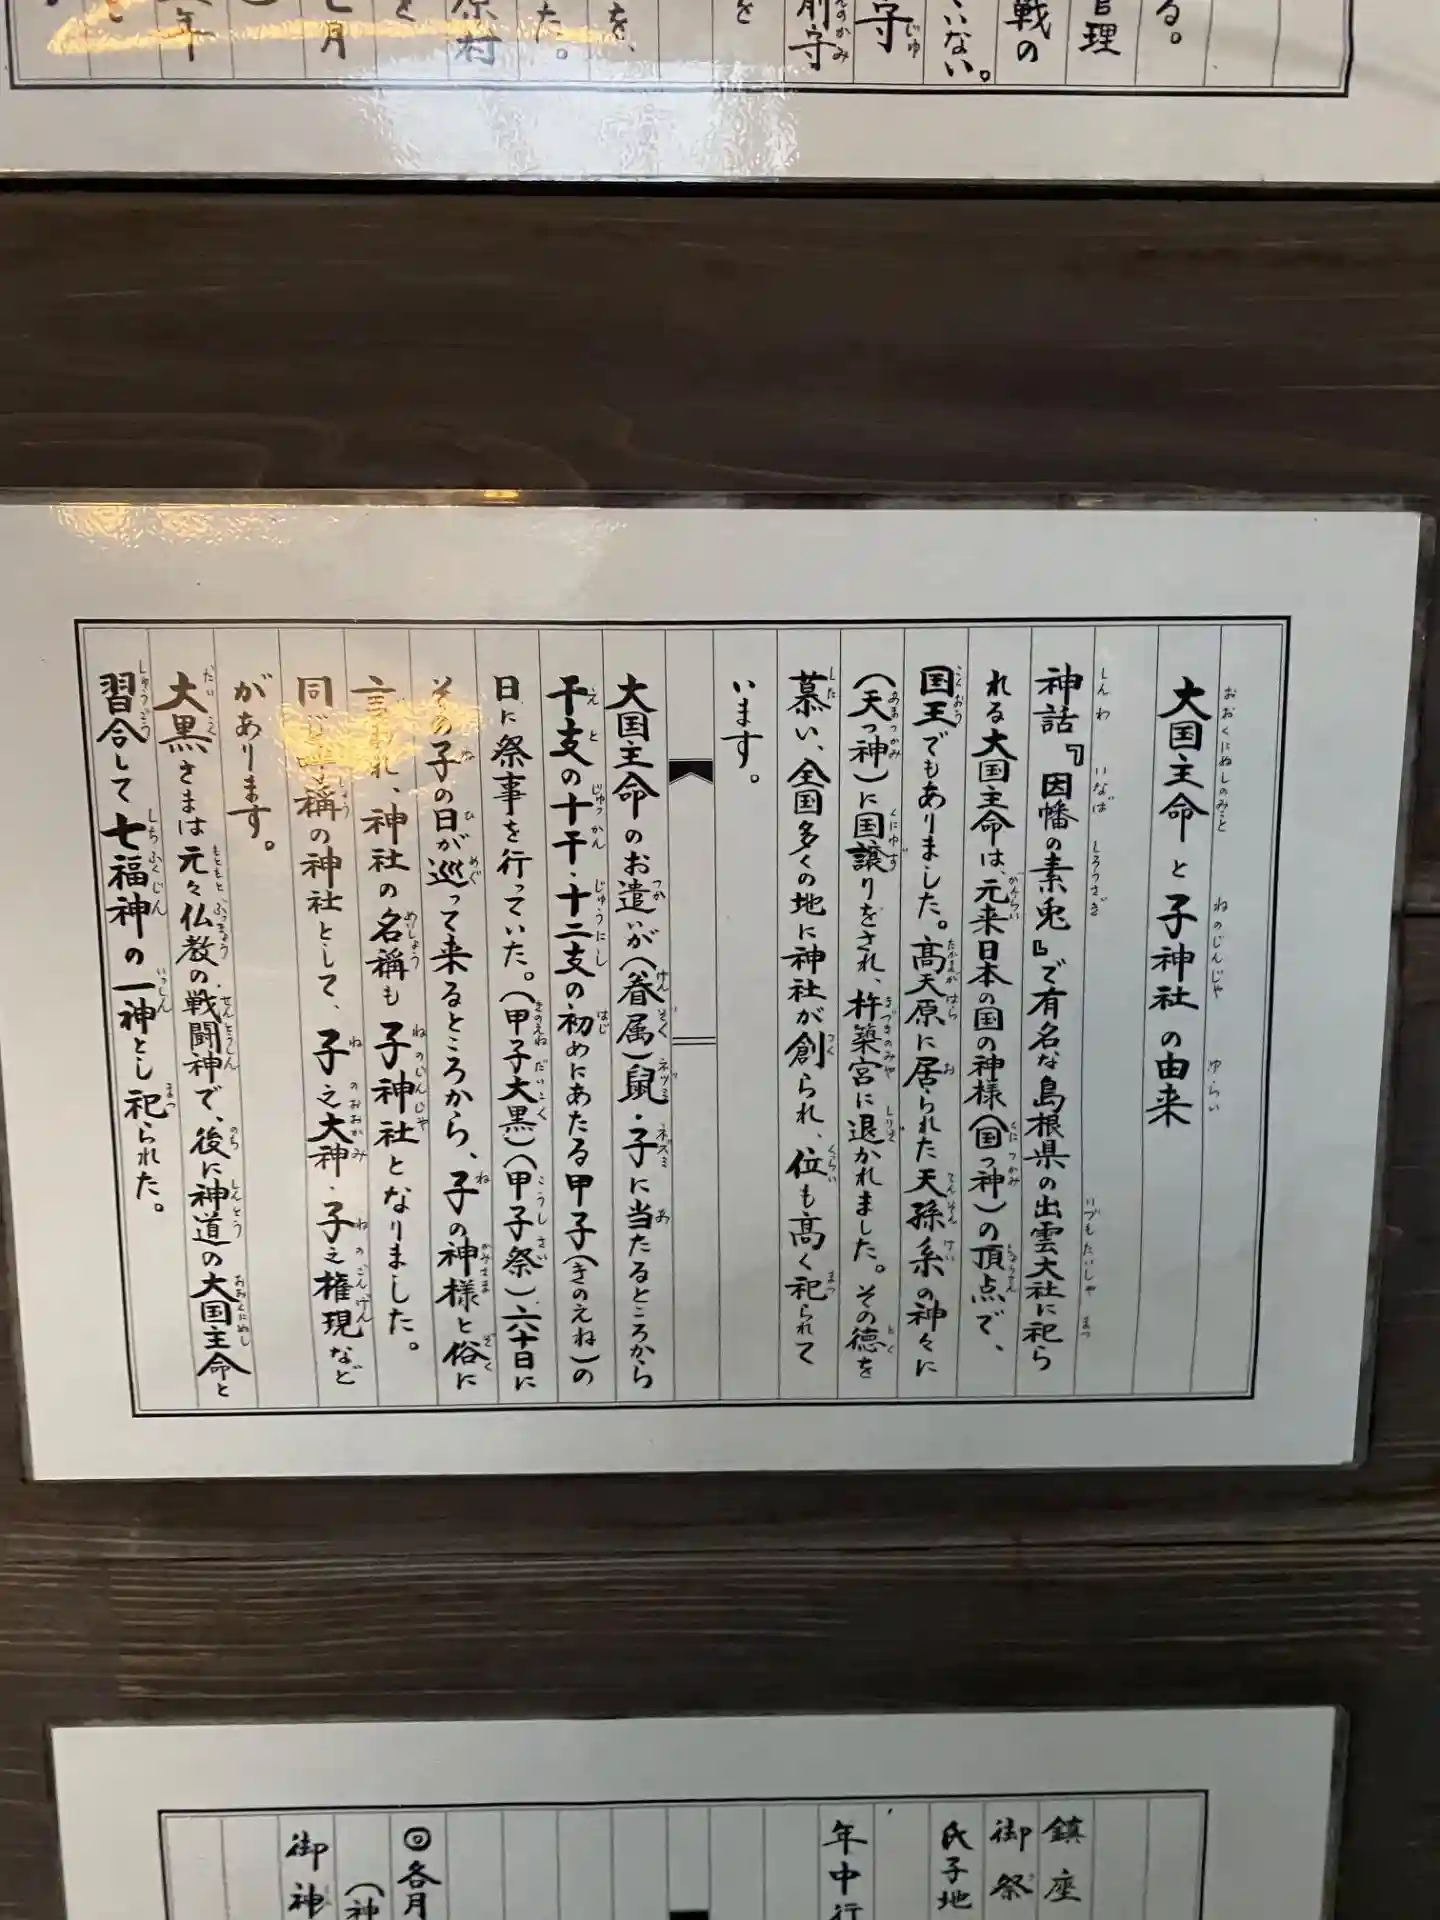 る。
管理
戦の
くいない。
守
前守
を
を、
た。
原村
七月
と
年
大国主命と子神社の由来
神話『因幡の素兎』で有名な島根県の出雲大社に祀ら
れる大国主命は、元来日本の国の神様(国っ神)の頂点で、
国王でもありました。高天原に居られた天孫系の神々に
(天っ神)に国譲りをされ、杵築宮に退かれました。その徳を
慕い、全国多くの地に神社が創られ、位も高く祀られて
います。
大国主命のお遣いが(眷属)鼠・子に当たるところから
干支の十干・十二支の初めにあたる甲子(きのえね)の
日に祭事を行っていた。(甲子大黒)(甲子祭)六十日に
その子の日が巡って来るところから、子の神様と俗に
言われ、神社の名稱も子神社となりました。
同じ呼稱の神社として、子之大神・子之権現など
があります。
大黒さまは元々仏教の戦闘神で、後に神道の大国主命と
習合して七福神の一神とし祀られた。
鎮座
御祭
氏子地
年中行
◎各月
(神
御神